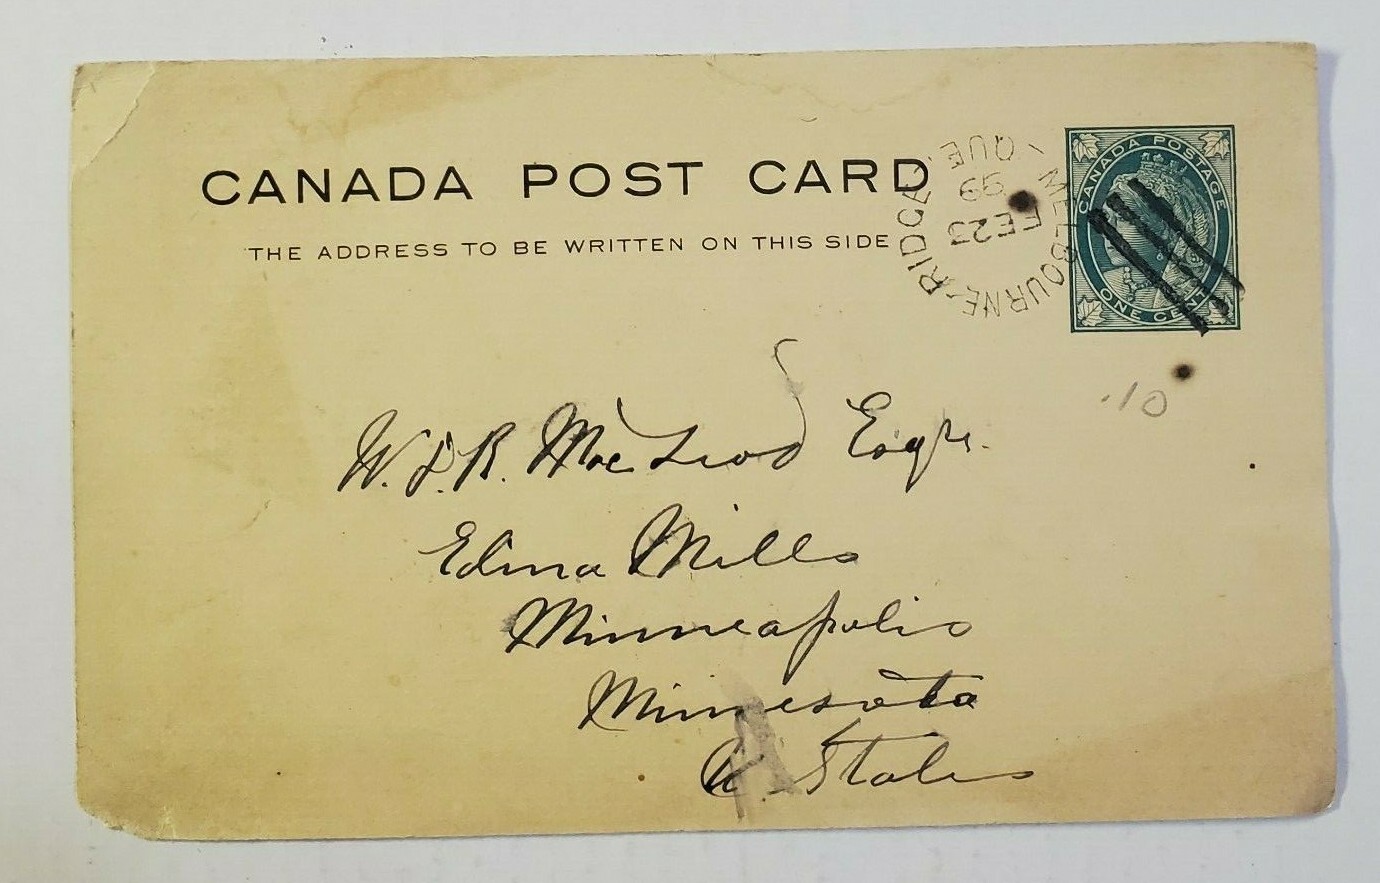 CANADA POST CARD
THE ADDRESS TO BE WRITTEN ON THIS SIDE
MELBOURNE-RIDGE
QUE
FE 23
99
CANADA POSTAGE
ONE CENT
.10
W. D. R. MacLeod Esqr.
Edina Mills
Minneapolis
Minnesota
U. States
A